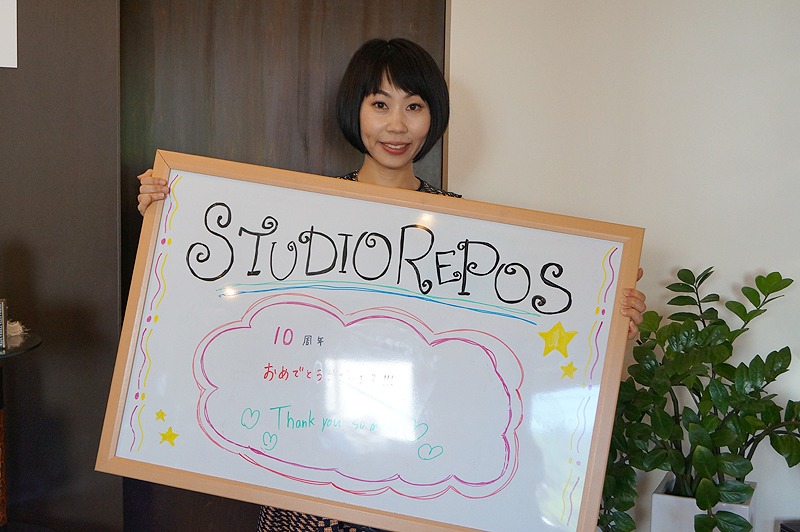 STUDIO REPOS
10周年
おめでとう !!!
Thank you